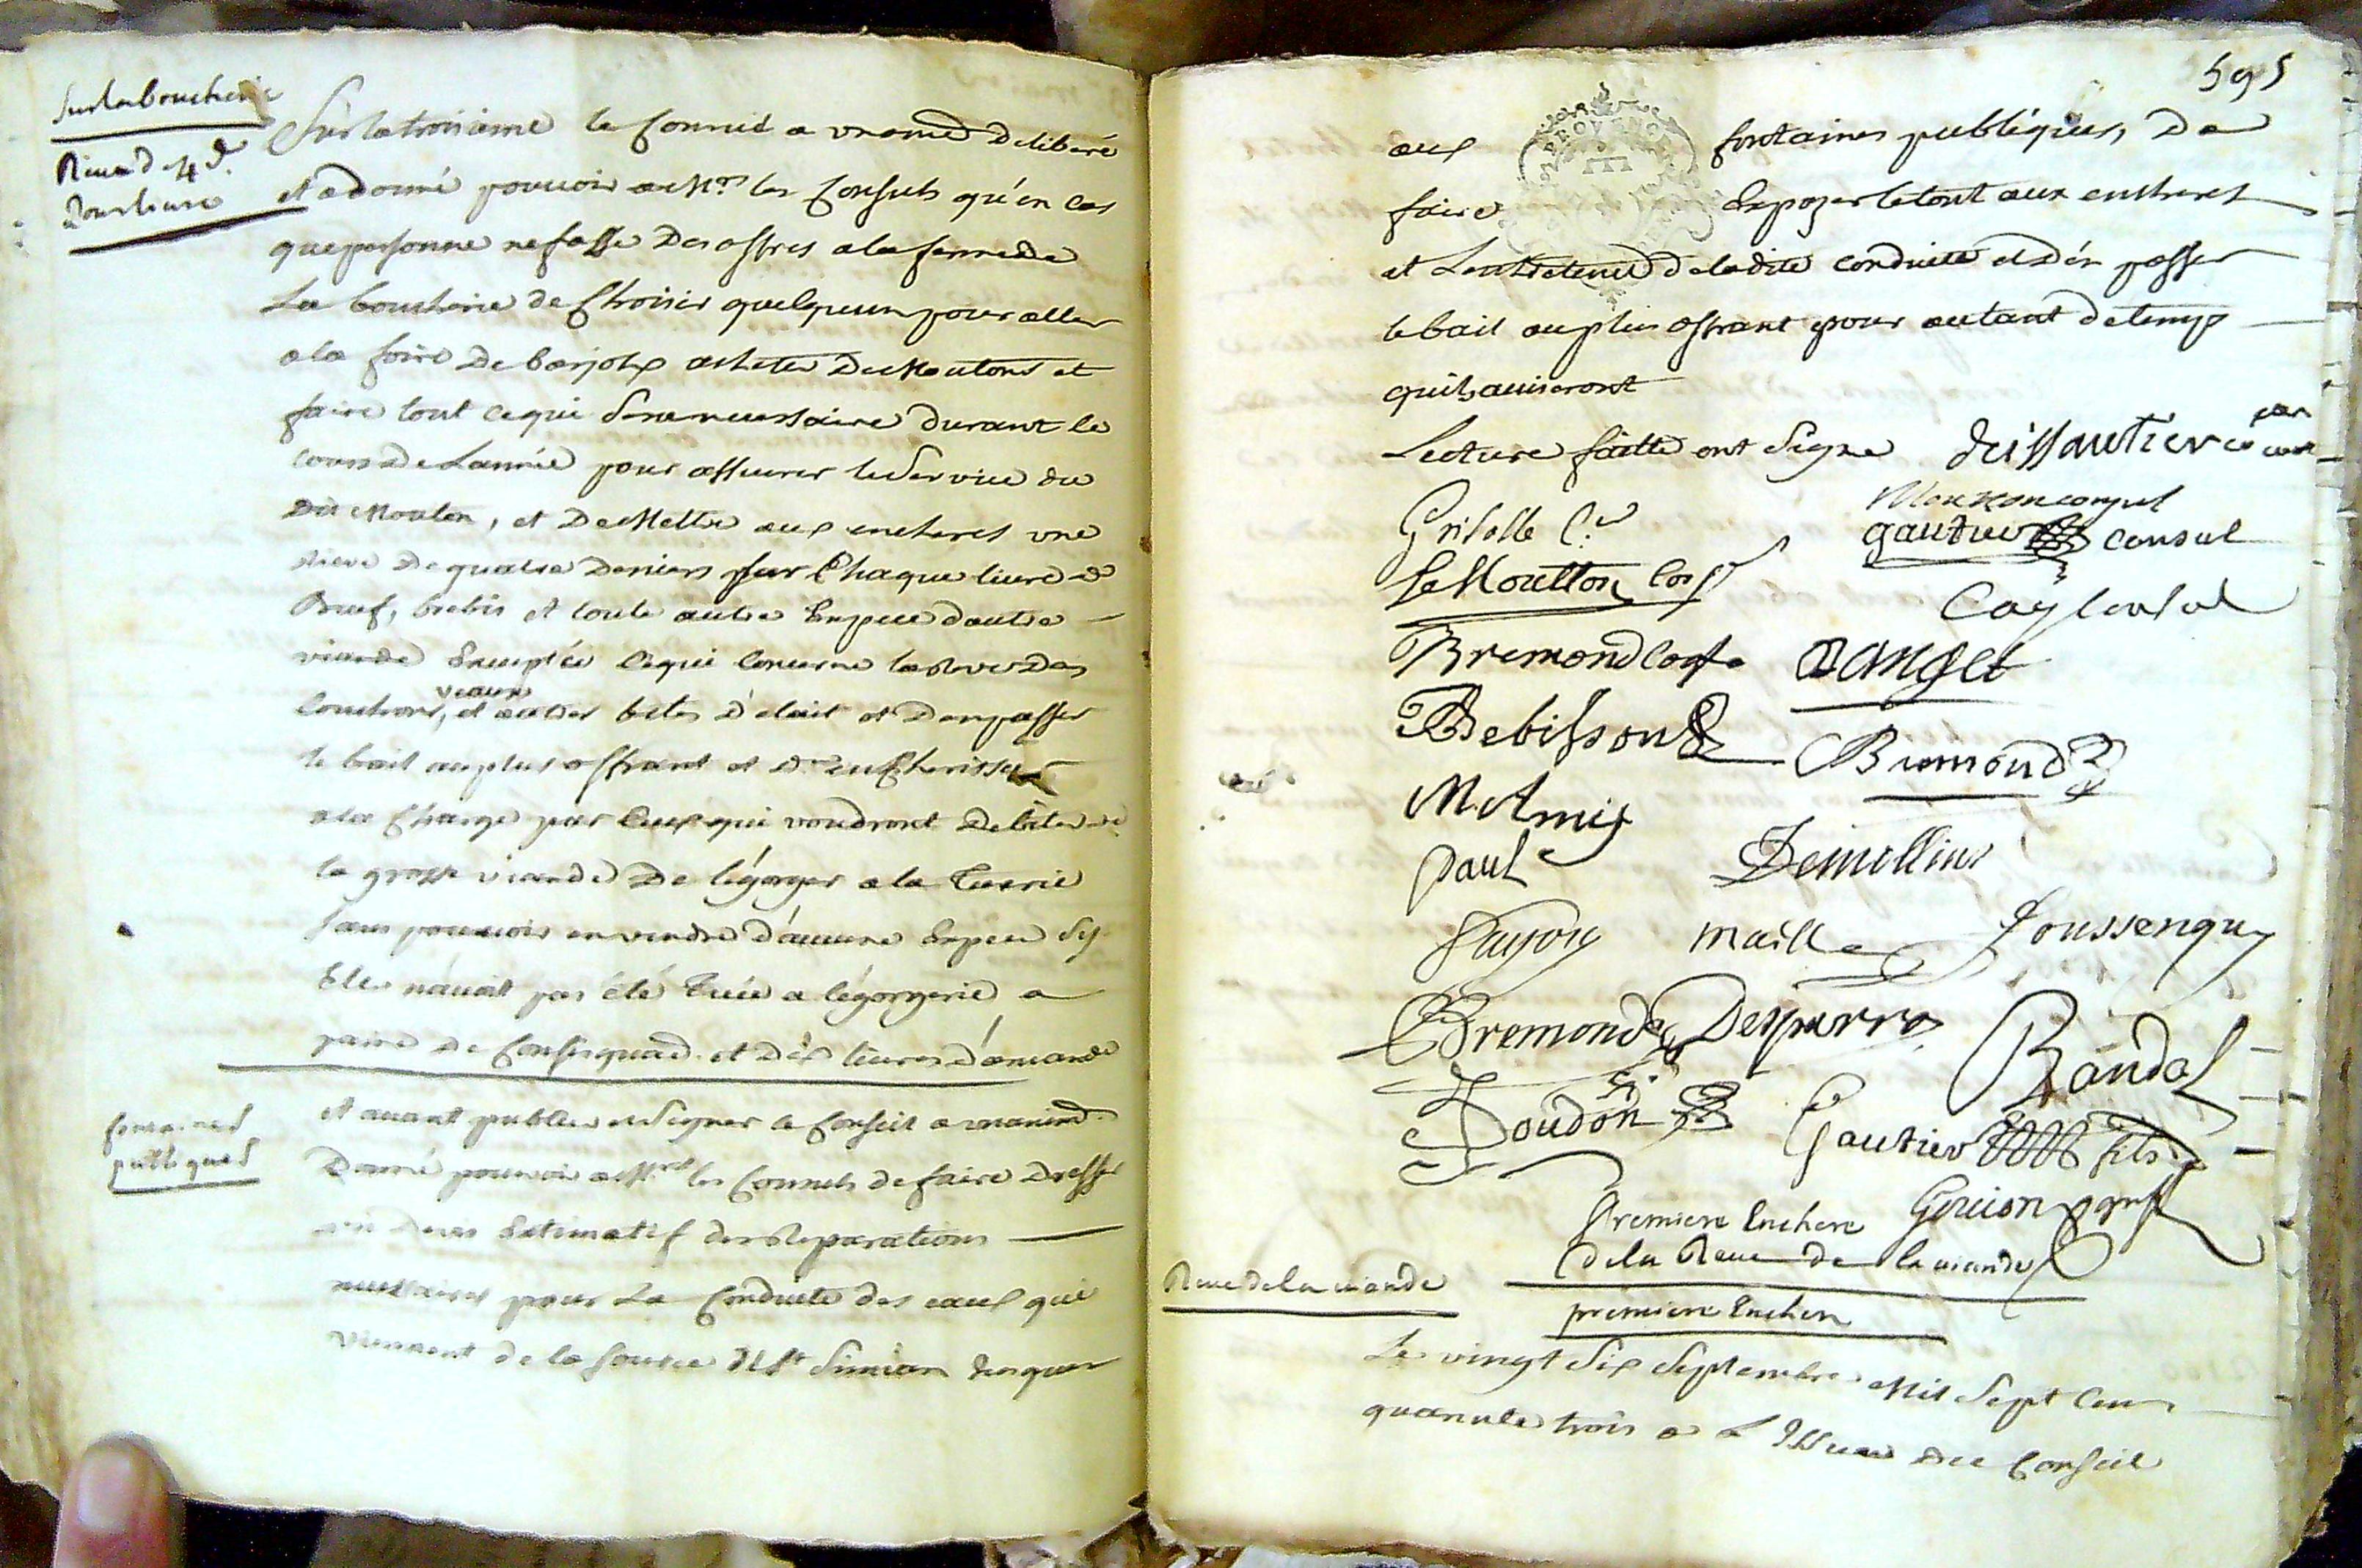 Sur la boucherie
Reve de 4 d.
pour livre
Sur la troisieme le Conseil a unanimed. Deliberé
et a donné pouvoir a Mrs les Consuls qu'en cas
que personne ne fasse Des offres a la ferme de
La boucherie de Choisir quelqueun pour aller
a la foire De barjolx acheter Des Moutons et
faire tout ce qui sera necessaire Durant le
cours De Lannée pour assurer le Service du
Dit Mouton, et De Mettre aux encheres une
Reve De quatre Deniers sur Chaque livre de
Bœuf, brebis et toute autre Espece dautre
viande Exceptée Ce qui Concerne la Reve Des
Couchons, veaux et autres betes D'elait et Den passer
le bail au plus offrant et Dr. enCherisseur
a la Charge par Ceux qui voudront Debiter de
la grosse viande De légorger a la Tuerie
sans pouvoir en vendre D'aucune Espece Sy
Elle n'avait pas été Tuée a légorgerie a
paine De Confisquaõn et Dix livres D'amande
fontaines
publiques
et avant publier et Signer le Conseil a unanimd.
Donné pouvoir a Mrs les Consuls de faire Dresser
un Devis Estimatif des Reparations
necessaires pour La Conduite des eaux qui
viennent de la source de St Simian Jusques
595
aux fontaines publiques, De
faire Exposer le tout aux encheres
et Lentretenuë De ladite conduite et D'en passer
le bail au plus offrant pour autant De temps
quils aviseront
Lecture faitte ont Signé deissautier
Mouton consul
Grisolle
gautier consul
Le Moutton Cons
Cay Consul
Bremond Const Danget
Debisson
Bremond
M Amic
Paul Demollins
Fauyou maille Joussenquy
Bremond Desparra
Randol
Doudon Gautier fils
Gouion greff
Premiere Enchere
de la Reve de la viande
Reve de la viande
premiere Enchere
Le vingt Six Septembre Mil Sept Cens
quarante trois a L'Issue Du Conseil